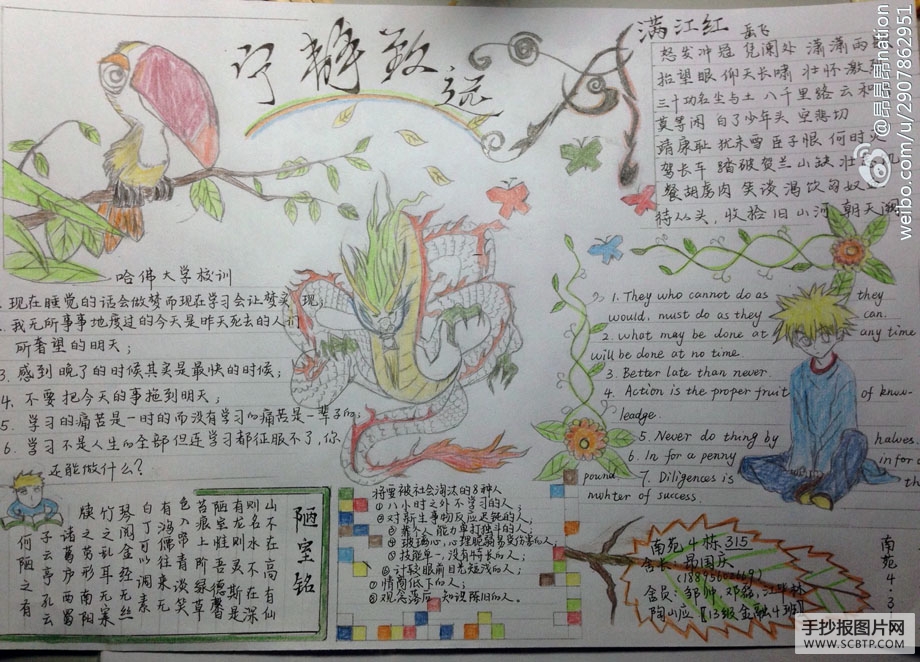 宁静致远
满江红 岳飞
怒发冲冠 凭阑处 潇潇雨
抬望眼 仰天长啸 壮怀激
三十功名尘与土 八千里路 云和
莫等闲 白了少年头 空悲切
靖康耻 犹未雪 臣子恨 何时
驾长车 踏破贺兰山缺 壮
餐胡虏肉 笑谈渴饮匈奴
待从头、收拾旧山河 朝天阙
哈佛大学校训
1.现在睡觉的话会做梦而现在学习会让梦实现
2.我无所事事地度过的今天是昨天死去的人们
所奢望的明天;
3.感到晚了的时候其实是最快的时候;
4.不要把今天的事拖到明天;
5.学习的痛苦是一时的而没有学习的痛苦是一辈子的;
6.学习不是人生的全部但连学习都征服不了,你
还能做什么?
1. They who cannot do as they
would, must do as they can.
2. what may be done at any time
will be done at no time.
3. Better late than never.
4. Action is the proper fruit of know-
leadge.
5. Never do thing by halves.
6. In for a penny in for a
pound 7. Diligences is
muhter of success.
陋室铭
山不在高有仙
则名水不在深
有龙则灵斯是
陋室惟吾德馨
苔痕上阶绿草
色入帘青谈笑
有鸿儒往来无
白丁可以调素
琴阅金经无丝
竹之乱耳无案
牍之形南阳
诸葛庐西蜀
子云亭孔云
何陋之有
将要被社会淘汰的8种人
①八小时之外不学习的人;
②对新生事物反应迟钝的人;
③靠个人能力单打独斗的人;
④玻璃心,心理脆弱易受伤害的人;
⑤技能单一,没有特长的人;
⑥计较眼前目光短浅的人;
⑦情商低下的人;
⑧观念落后 知识陈旧的人.
南苑4栋315
舍长:昂国庆
舍员:邹帅,邓磊,江华林
陶山应【13级金融4班】
南苑4·3
@昂昂昂nation
weibo.com/u/2907862951
手抄报图片网
WWW.SCBTP.COM